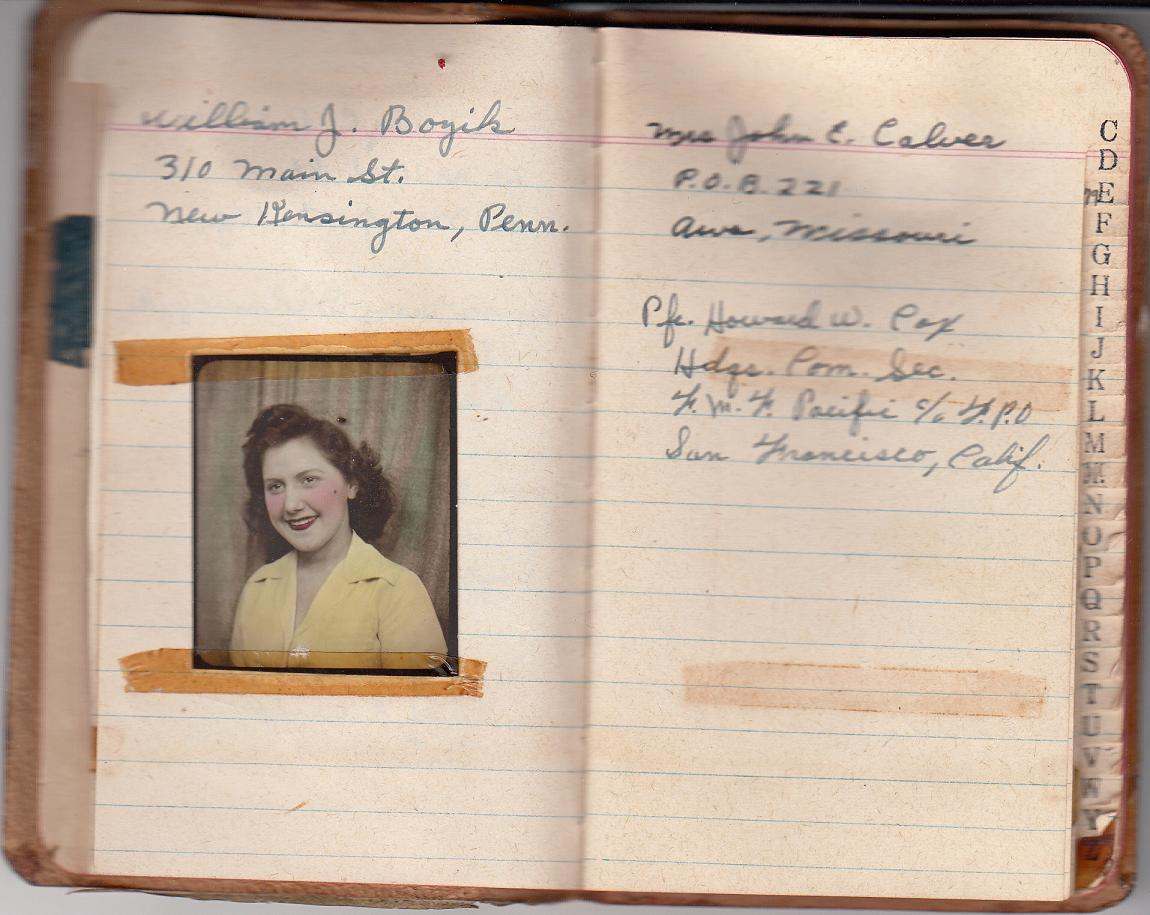 William J. Bozik
310 Main St.
New Kensington, Penn.
Mrs John E. Calver
P.O.B. 221
Ava, Missouri
Pfc. Howard W. Cox
Hdqs. Com. Sec.
F.M.F. Pacific c/o F.P.O
San Francisco, Calif.
C
D
E
F
G
H
I
J
K
L
M
N
O
P
Q
R
S
T
U
V
W
Y